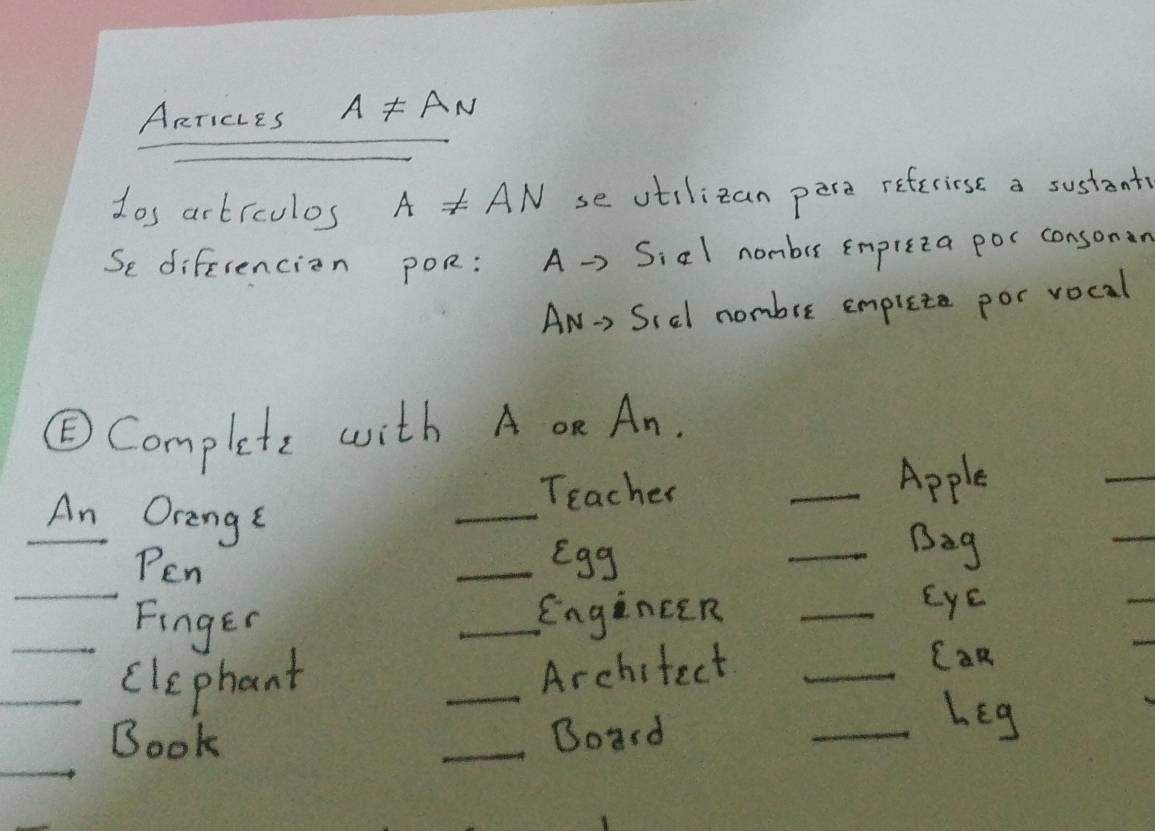 ARTICLES A ≠ AN
Los artículos A ≠ AN se utilizan para referirse a sustanti
Se diferencian por: A → Si el nombre empieza por consonan
AN → Si el nombre empieza por vocal
Ⓔ Complete with A or An.
An Orange ___ Teacher ___ Apple ___
___ Pen ___ Egg ___ Bag ___
___ Finger ___ Engineer ___ Eye ___
___ Elephant ___ Architect ___ Ear ___
___ Book ___ Board ___ Leg